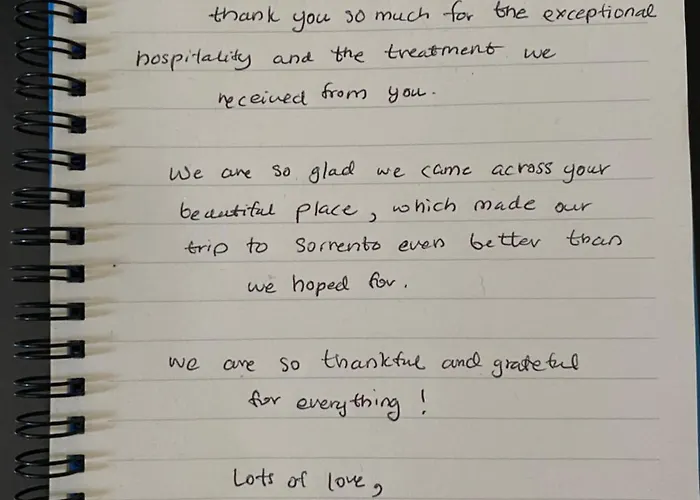 thank you so much for the exceptional
hospitality and the treatment we
received from you.
We are so glad we came across your
beautiful place, which made our
trip to Sorrento even better than
we hoped for.
we are so thankful and grateful
for everything!
Lots of love,